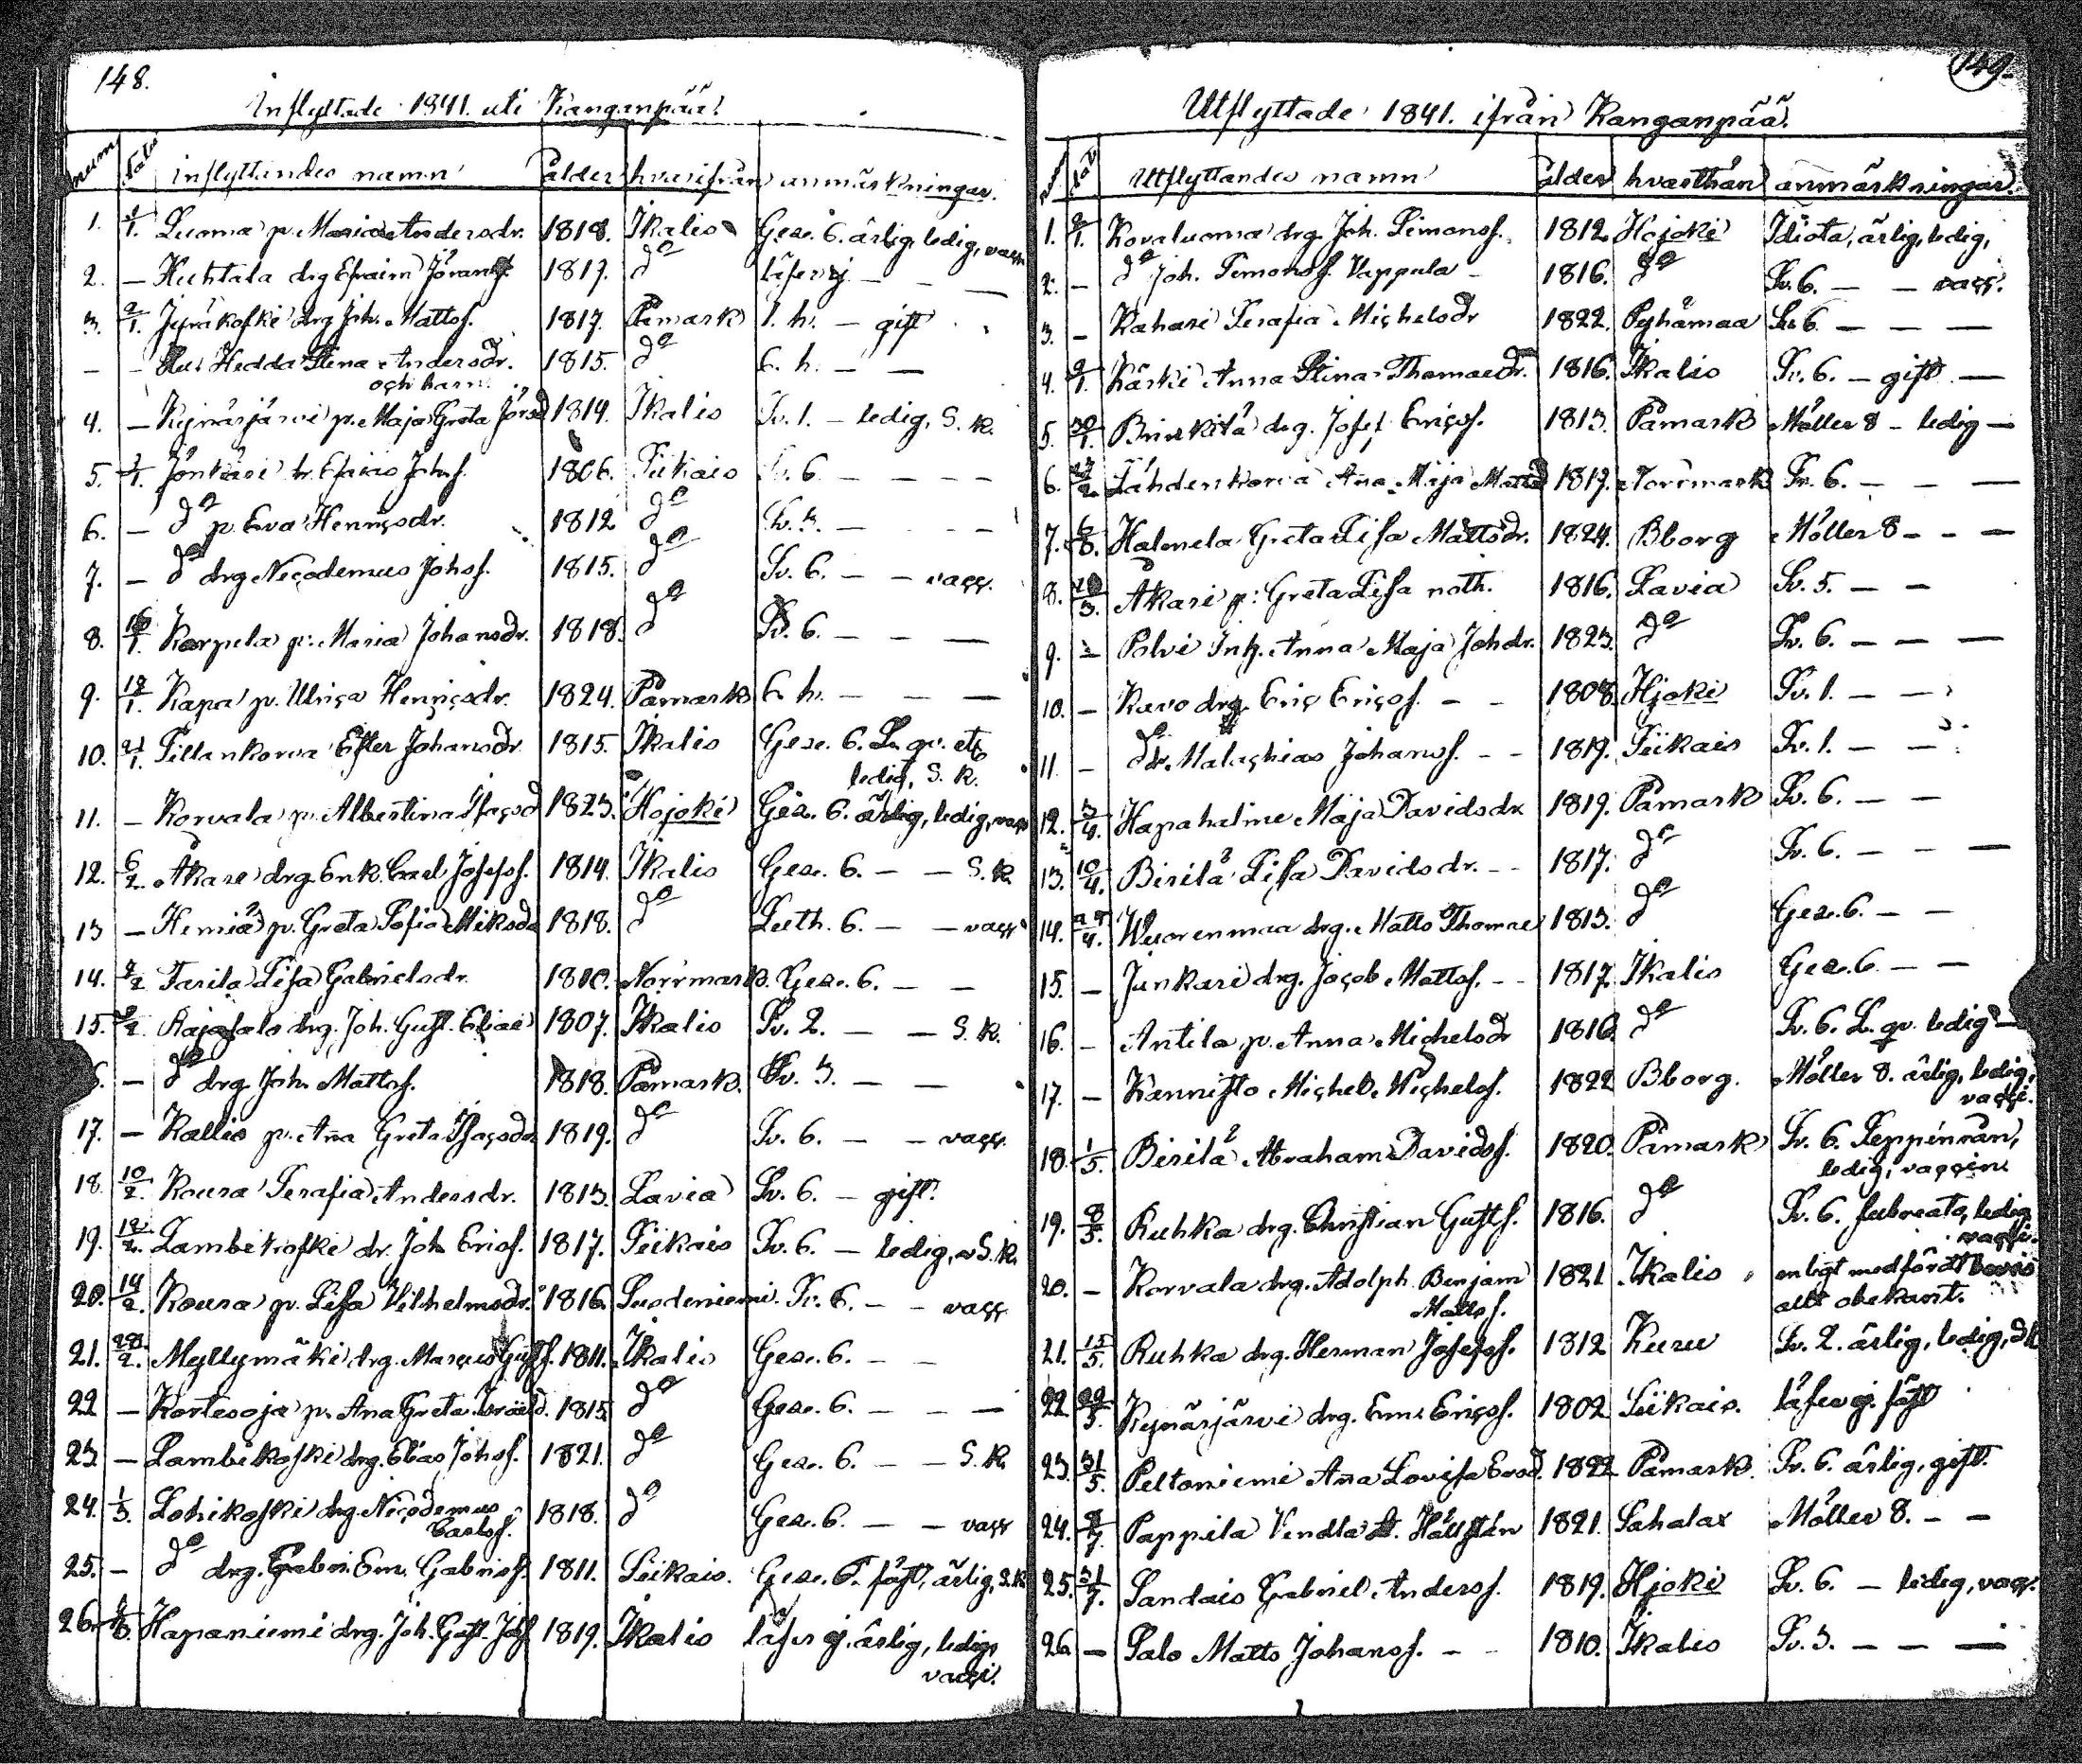 148.
Inflyttade 1841. uti Kanganpää.
num dato inflyttandes namn ålder hvarifrån anmärkningar.
1. 1/1. Luoma p. Maria Andersdr. 1818. Ikalis Geze. 6. ärlig, ledig, vacc
2. — Huhtala drg Efraim 1817. do läser ej — — —
3. 2/1. Jyräkoski drg Joh. Mattss. 1817. Påmark 1. h. — gift
— — Hu. Hedda Stina Andersdr. 1815. do 6. h. — —
och barn.
4. — Kynäsjärvi p. Maja Greta 1814. Ikalis Sv. 1. — ledig, S. K.
5. 1. Jönkäri dr. Esaias Johss. 1806. Siikais Sv. 6 — — — —
6. — do p. Eva Henricsdr. 1812 do Sv. 5. — — —
7. — do drg Nicodemus Johss. 1815. do Sv. 6. — — vacc.
8. 16/1. Korpela p. Maria Johansdr. 1818. do Sv. 6. — — —
9. 18/1. Kapa p. Ulrica Henricsdr. 1824. Påmark 6 h. — — —
10. 21/1. Sillankorva Ester Johansdr 1815. Ikalis Geze. 6. L. qv. etc
ledig, S. K.
11. — Korvala p. Albertina Isacsd 1823. Hojoki Geze. 6. ärlig, ledig, vacc
12. 6/2. Åkare drg. Enk. Carl Josefss. 1814. Ikalis Geze. 6. — — S. K.
13 — Hemiä p. Greta Sofia Miksdr 1818. do Luth. 6. — — vacc
14. 7/2 Tarila Lisa Gabrielsdr. 1810. Norrmark. Geze. 6. — —
15. 8/2. Rajasalo drg. Joh. Gust. Eliae 1807. Ikalis Sv. 2. — — S. K.
6. — do drg. Joh. Mattss. 1818. Påmark. Sv. 3. — —
17. — Kallio p. Ana Greta Isacsdr 1819. do Sv. 6. — — vacc.
18. 10/2. Koura Serafia Andersdr. 1813. Lavia Sv. 6. — gift.
19. 12/2. Lambikoski dr. Joh Ericss. 1817. Siikais Sv. 6. — ledig, S. K.
20. 14/2. Koura p. Lisa Vilhelmsdr. 1816. Suodeniemi. Sv. 6. — — vacc
21. 28/2. Myllymäki drg. Marcus Gustss. 1811. Ikalis Geze. 6. — —
22 — Kortesoja p. Ana Greta Israelsd. 1815. do Geze. 6. — — —
23 — Lambikoski drg. Elias Johss. 1821. do Geze. 6. — — S. K.
24. 1/3. Lohikoski drg. Nicodemus 1818. do Geze. 6. — — vacc
Carlss.
25. — do drg. Gabri. Em. Gabrielss. 1811. Siikais. Geze. 6. fäst, ärlig, S. K
26. Hapaniemi drg. Joh. Gust. Johss. 1819. Ikalis läser ej. ärlig, ledig,
vacci.
149.
Utflyttade 1841. ifrån Kanganpää.
Utflyttandes namn ålder hvarthän anmärkningar.
1. 2/1. Kovaluoma drg. Joh. Simonss. 1812. Hojoki Idiota, ärlig, ledig,
2. — do Joh. Simonss. Vappula — 1816. do Sv. 6. — — vacc.
3. — Kahari Serafia Michelsdr 1822. Pyhämaa Sv. 6. — — —
4. 9/1. Kärki Anna Stina Thomaedr. 1816. Ikalis Sv. 6. — gift —
5. 30/1. drg. Josef Ericss. 1813. Påmark Möller 8 — ledig —
6. 27/2. Lähdenkorva Ana Maja Mattsd 1817. Norrmark Sv. 6. — — —
7. Halmela Greta Lisa Mattsdr. 1824. Bborg Möller 8 — — —
8. 20/3. Åkari p: Greta Lisa noth. 1816. Lavia Sv. 5. — —
9. — Polvi Inh. Anna Maja Johdr. 1823. do Sv. 6. — — —
10. — Kuvo drg. Eric Ericss. — — 1808. Hjoki Sv. 1. — —
11. — do dr. Malachias Johanss. — — 1817. Siikais Sv. 1. — —
12. 3/4. Hapahalme Maja Davidsdr 1819. Påmark Sv. 6. — —
13. 10/4. Birilä Lisa Davidsdr. — — 1817. do Sv. 6. — — —
14. Wuorenmaa drg. Matts Thomae 1813. do Geze. 6. — —
15. — Junkari drg. Jacob Mattss. — — 1817. Ikalis Geze. 6. — —
16. — Antila p. Anna Michelsdr 1816. do Sv. 6. L. qv. ledig —
17. — Kannisto Michel Michelss. 1822 Bborg. Möller 8. ärlig, ledig,
vacci.
18. 1/5. Birilä Abraham Davidss. 1820. Påmark Sv. 6.
ledig, vaccin
19. 8/5. Ruhka drg. Christian Gustss. 1816. do Sv. 6. ledig
vacci.
20. — Korvala drg. Adolph Benjam 1821. Ikalis enligt medfördt bevis
Mattss. allt obekant.
21. 15/5. Ruhka drg. Herman Josefss. 1812 Kuru Sv. 2. ärlig, ledig, S K
22 29/5. Kynäsjärvi drg. Em. Ericss. 1802 Siikais. läser ej. fäst
23. 31/5. Peltoniemi Ana Lovisa 1822 Påmark. Sv. 6. ärlig, gift.
24. Pappila Vendla Hällstén 1821. Sahalax Möller 8. — —
25. 31/7. Sandais Gabriel Anderss. 1819. Hjoki Sv. 6. — ledig, vacc.
26. — Salo Matts Johanss. — — 1810. Ikalis Sv. 3. — — —